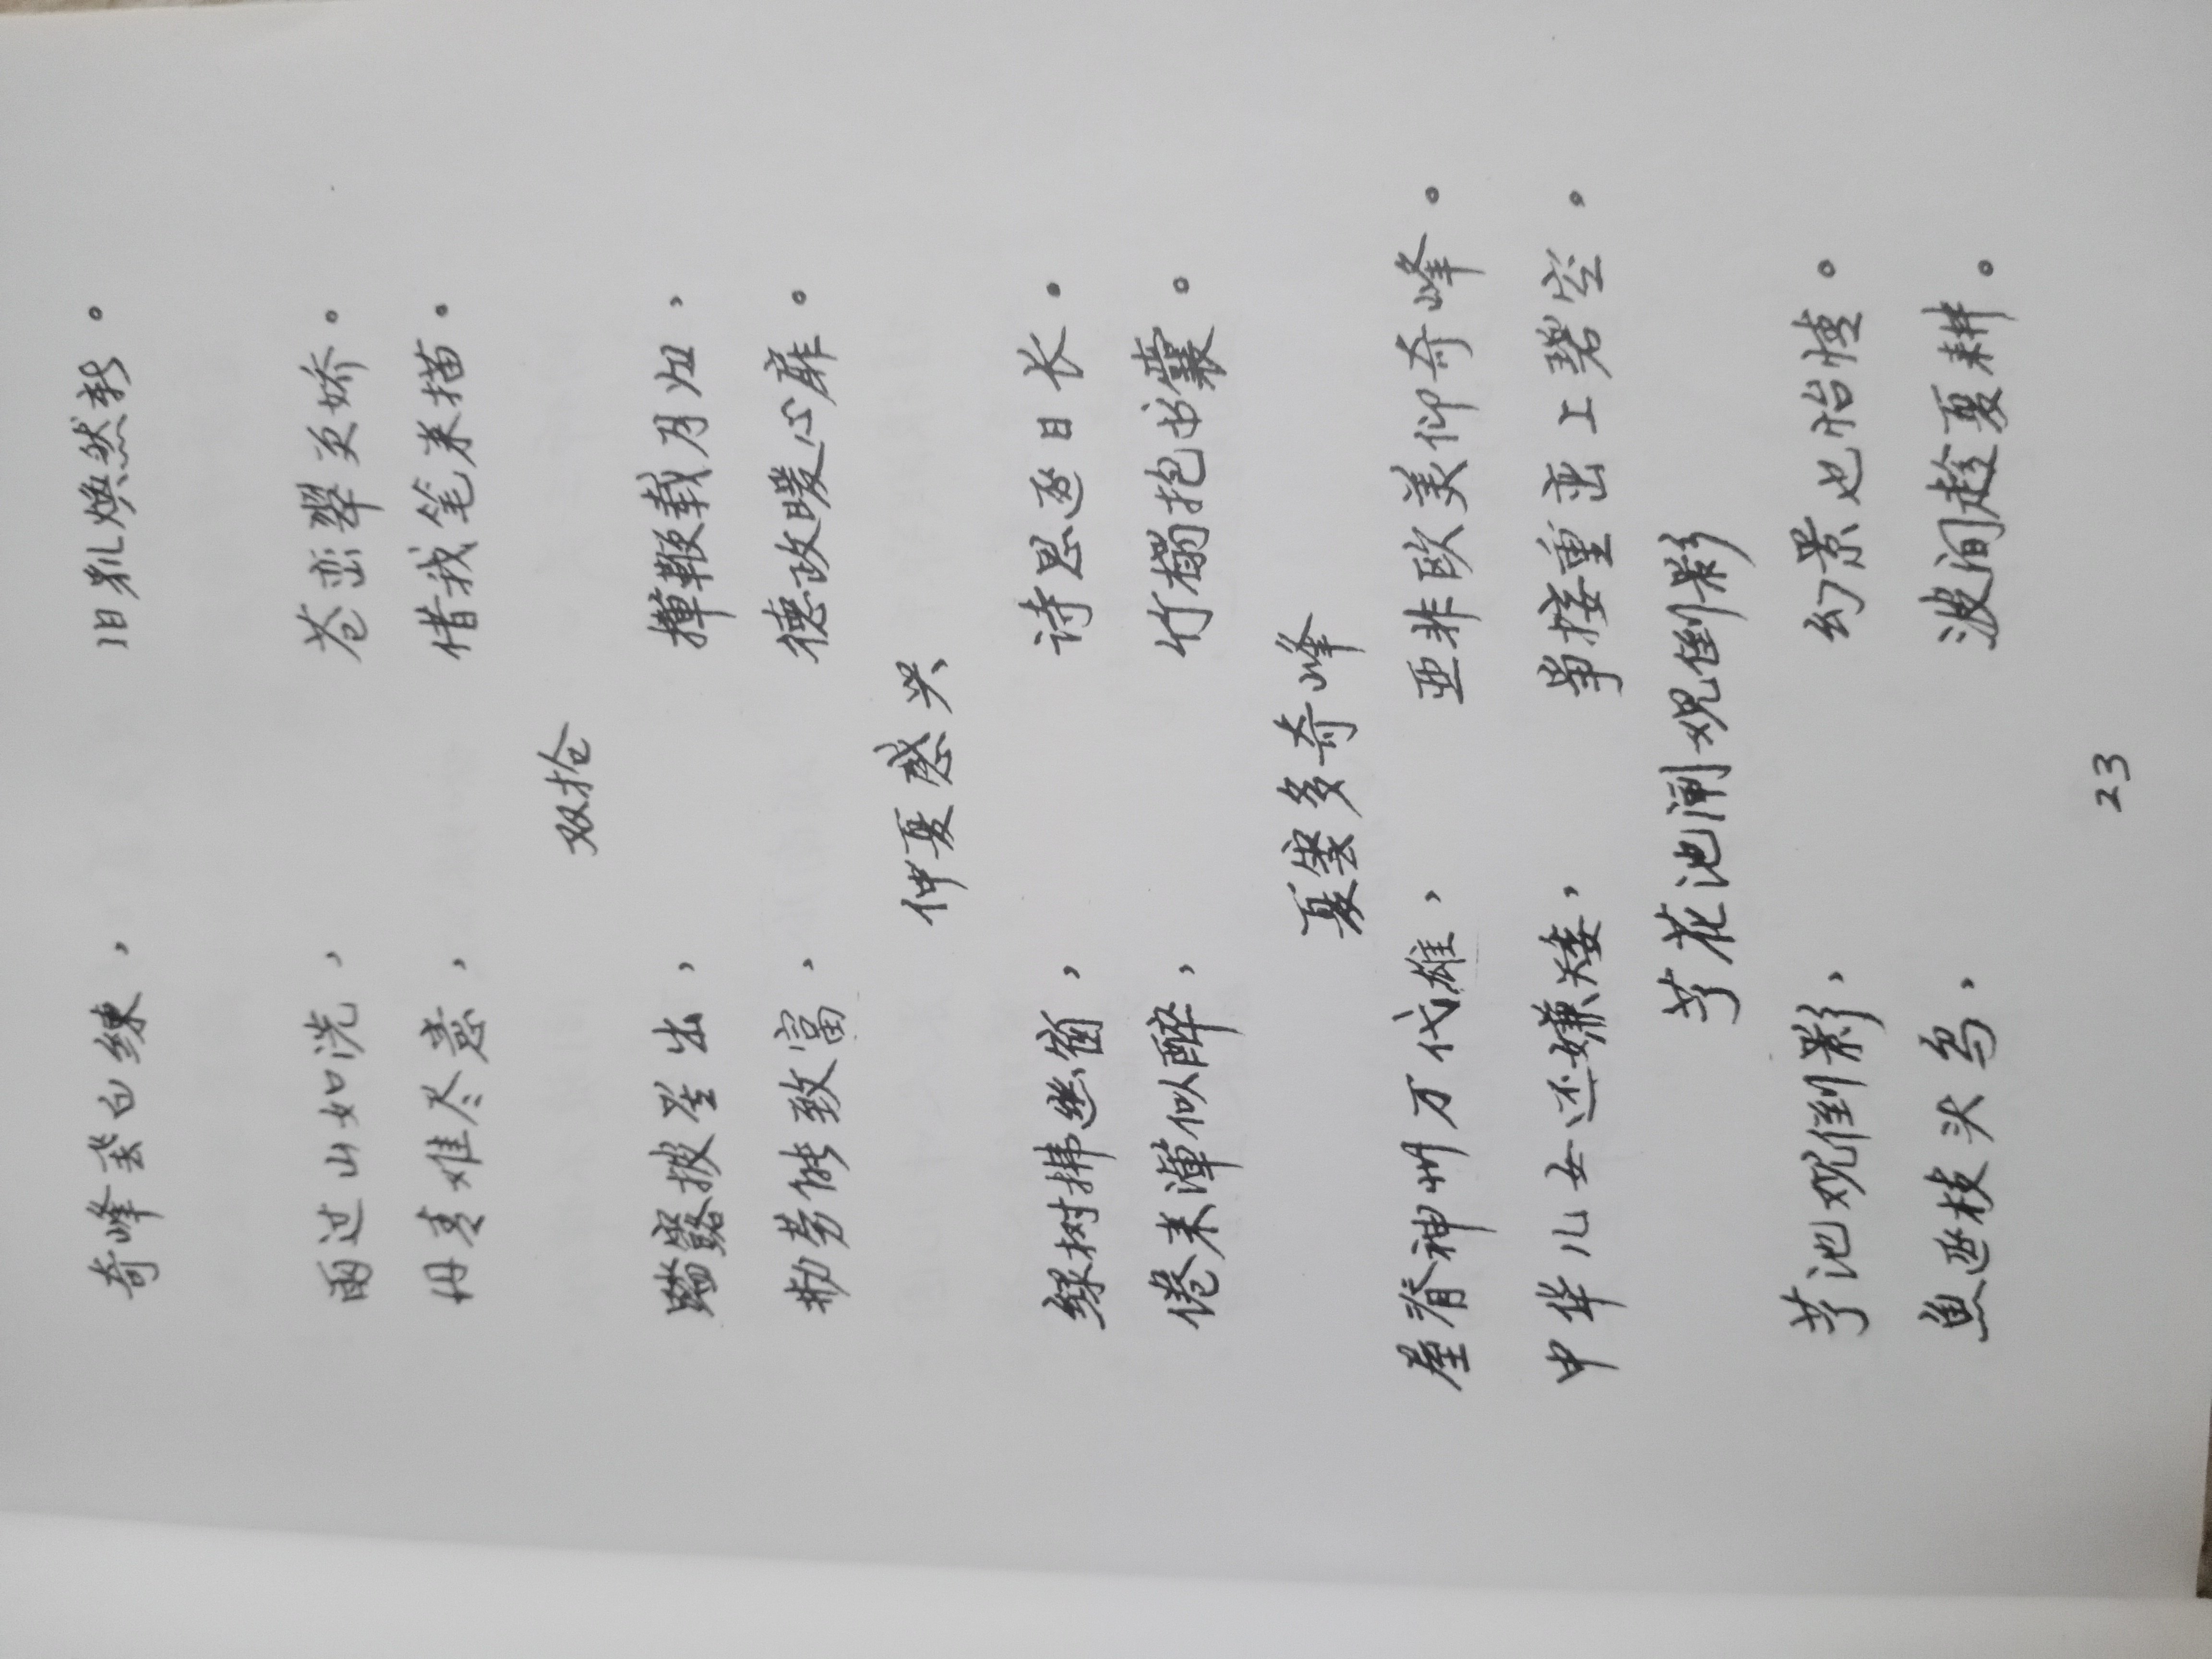 奇峰叠白练，旧貌焕然新。
雨过山如洗，苍峦翠更娇。
丹青难尽意，借我笔来描。
双抢
踏露披星出，挥鞭载月归，
勤劳能致富，德政暖心扉。
仲夏感兴
绿树拂幽窗，诗思逐日长。
倦来浑似醉，竹榻抱书囊。
夏云多奇峰
屋脊神州万代雄，亚非欧美仰奇峰。
中华儿女还嫌矮，争接重峦上碧空。
芳花池闸观倒影
芳池观倒影，幻景也怡情。
鱼逐枝头鸟，波间趁夏耕。
23